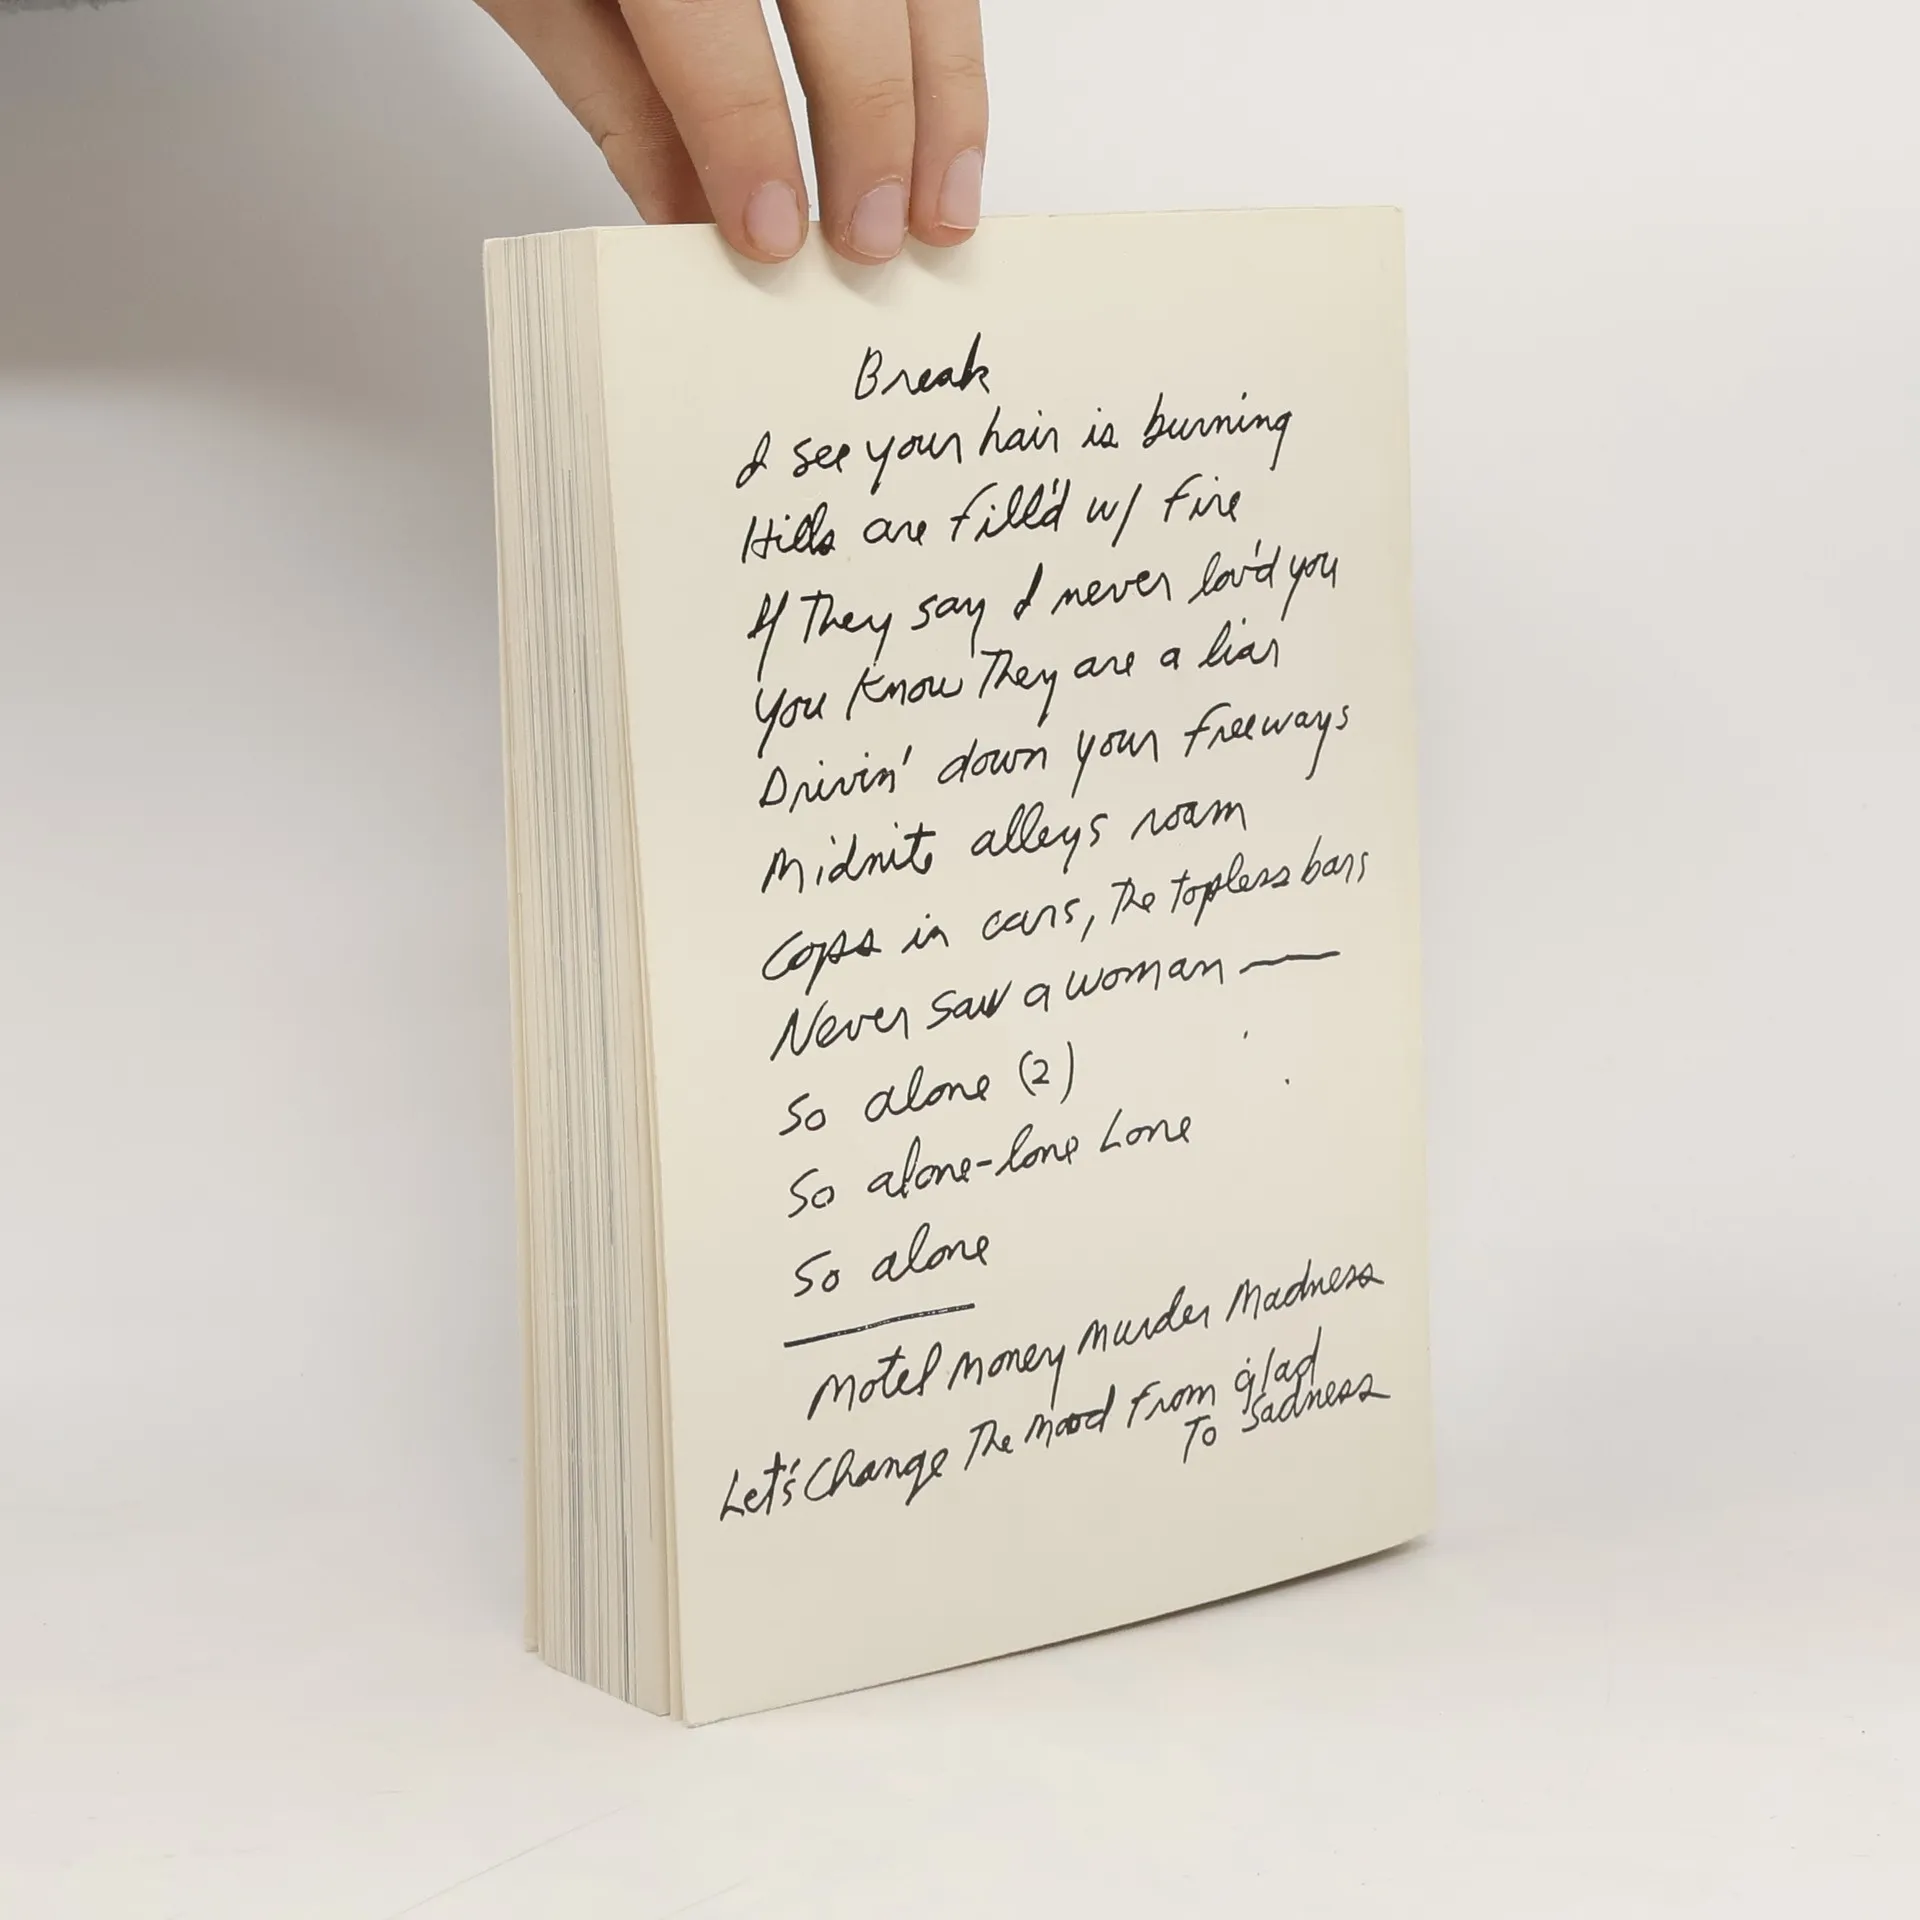 Break
I see your hair is burning
Hills are fill'd w/ fire
If They say I never lov'd you
You Know They are a liar
Drivin' down your freeways
Midnite alleys roam
Cops in cars, The topless bars
Never saw a woman —
So alone (2)
So alone-lone Lone
So alone
Motel Money Murder Madness
Let's Change The Mood From glad
To Sadness